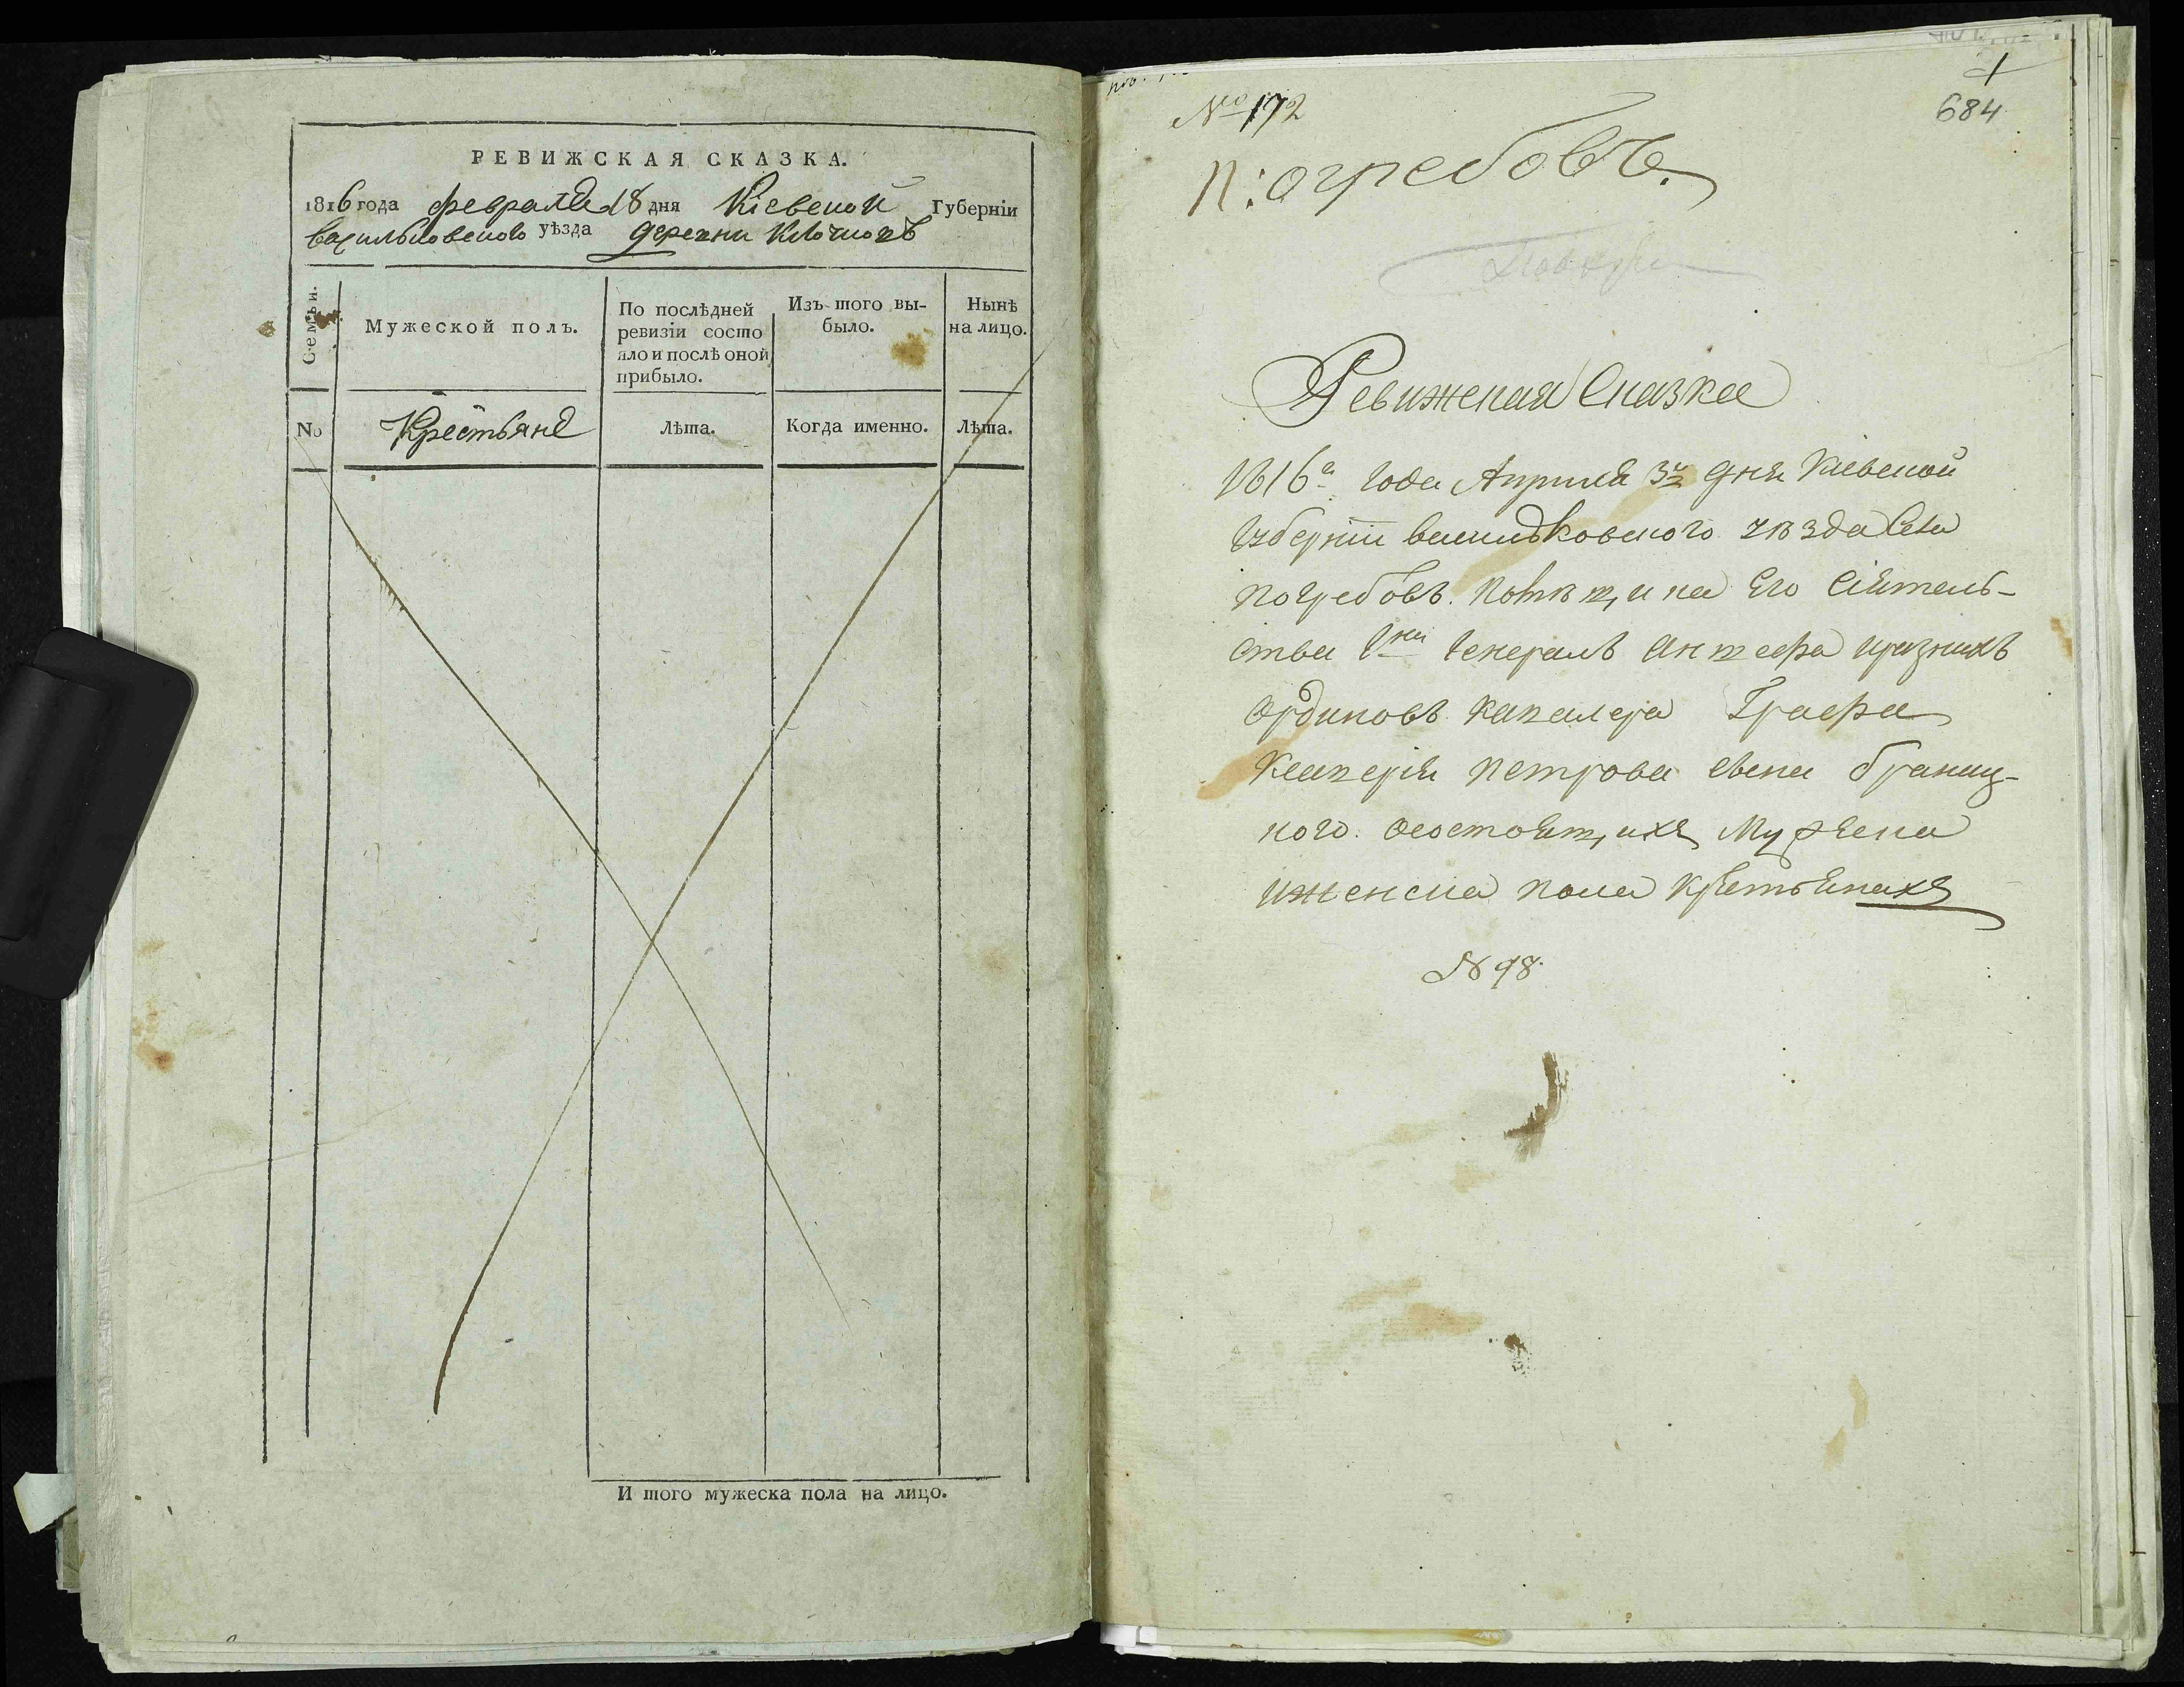 РЕВИЖСКАЯ СКАЗКА.
1816 года февраля 18 дня Кіевской Губерніи
васильковского уѣзда деревни Клочковъ
Семьи.
Мужеской полъ.
По послѣдней
ревизіи состо
яло и послѣ оной
прибыло.
Изъ того вы-
было.
Нынѣ
на лицо.
No
Крестьяне
Лѣта.
Когда именно.
Лѣта.
И того мужеска пола на лицо.
№ 172
684
п: огребовъ.
Ревижская Сказка
1816г года Апреля 3г дня Кіевской
Губерніи васильковского уѣзда Села
погребовъ. помѣщика Его Сіятель-
ства Генералъ Аншефа иразныхъ
Ординовъ Кавалера Графа
Ксаверія Петрова сына браниц-
кого. Осостоящихъ Мужеска
иженска пола крестьянахъ
№ 98.